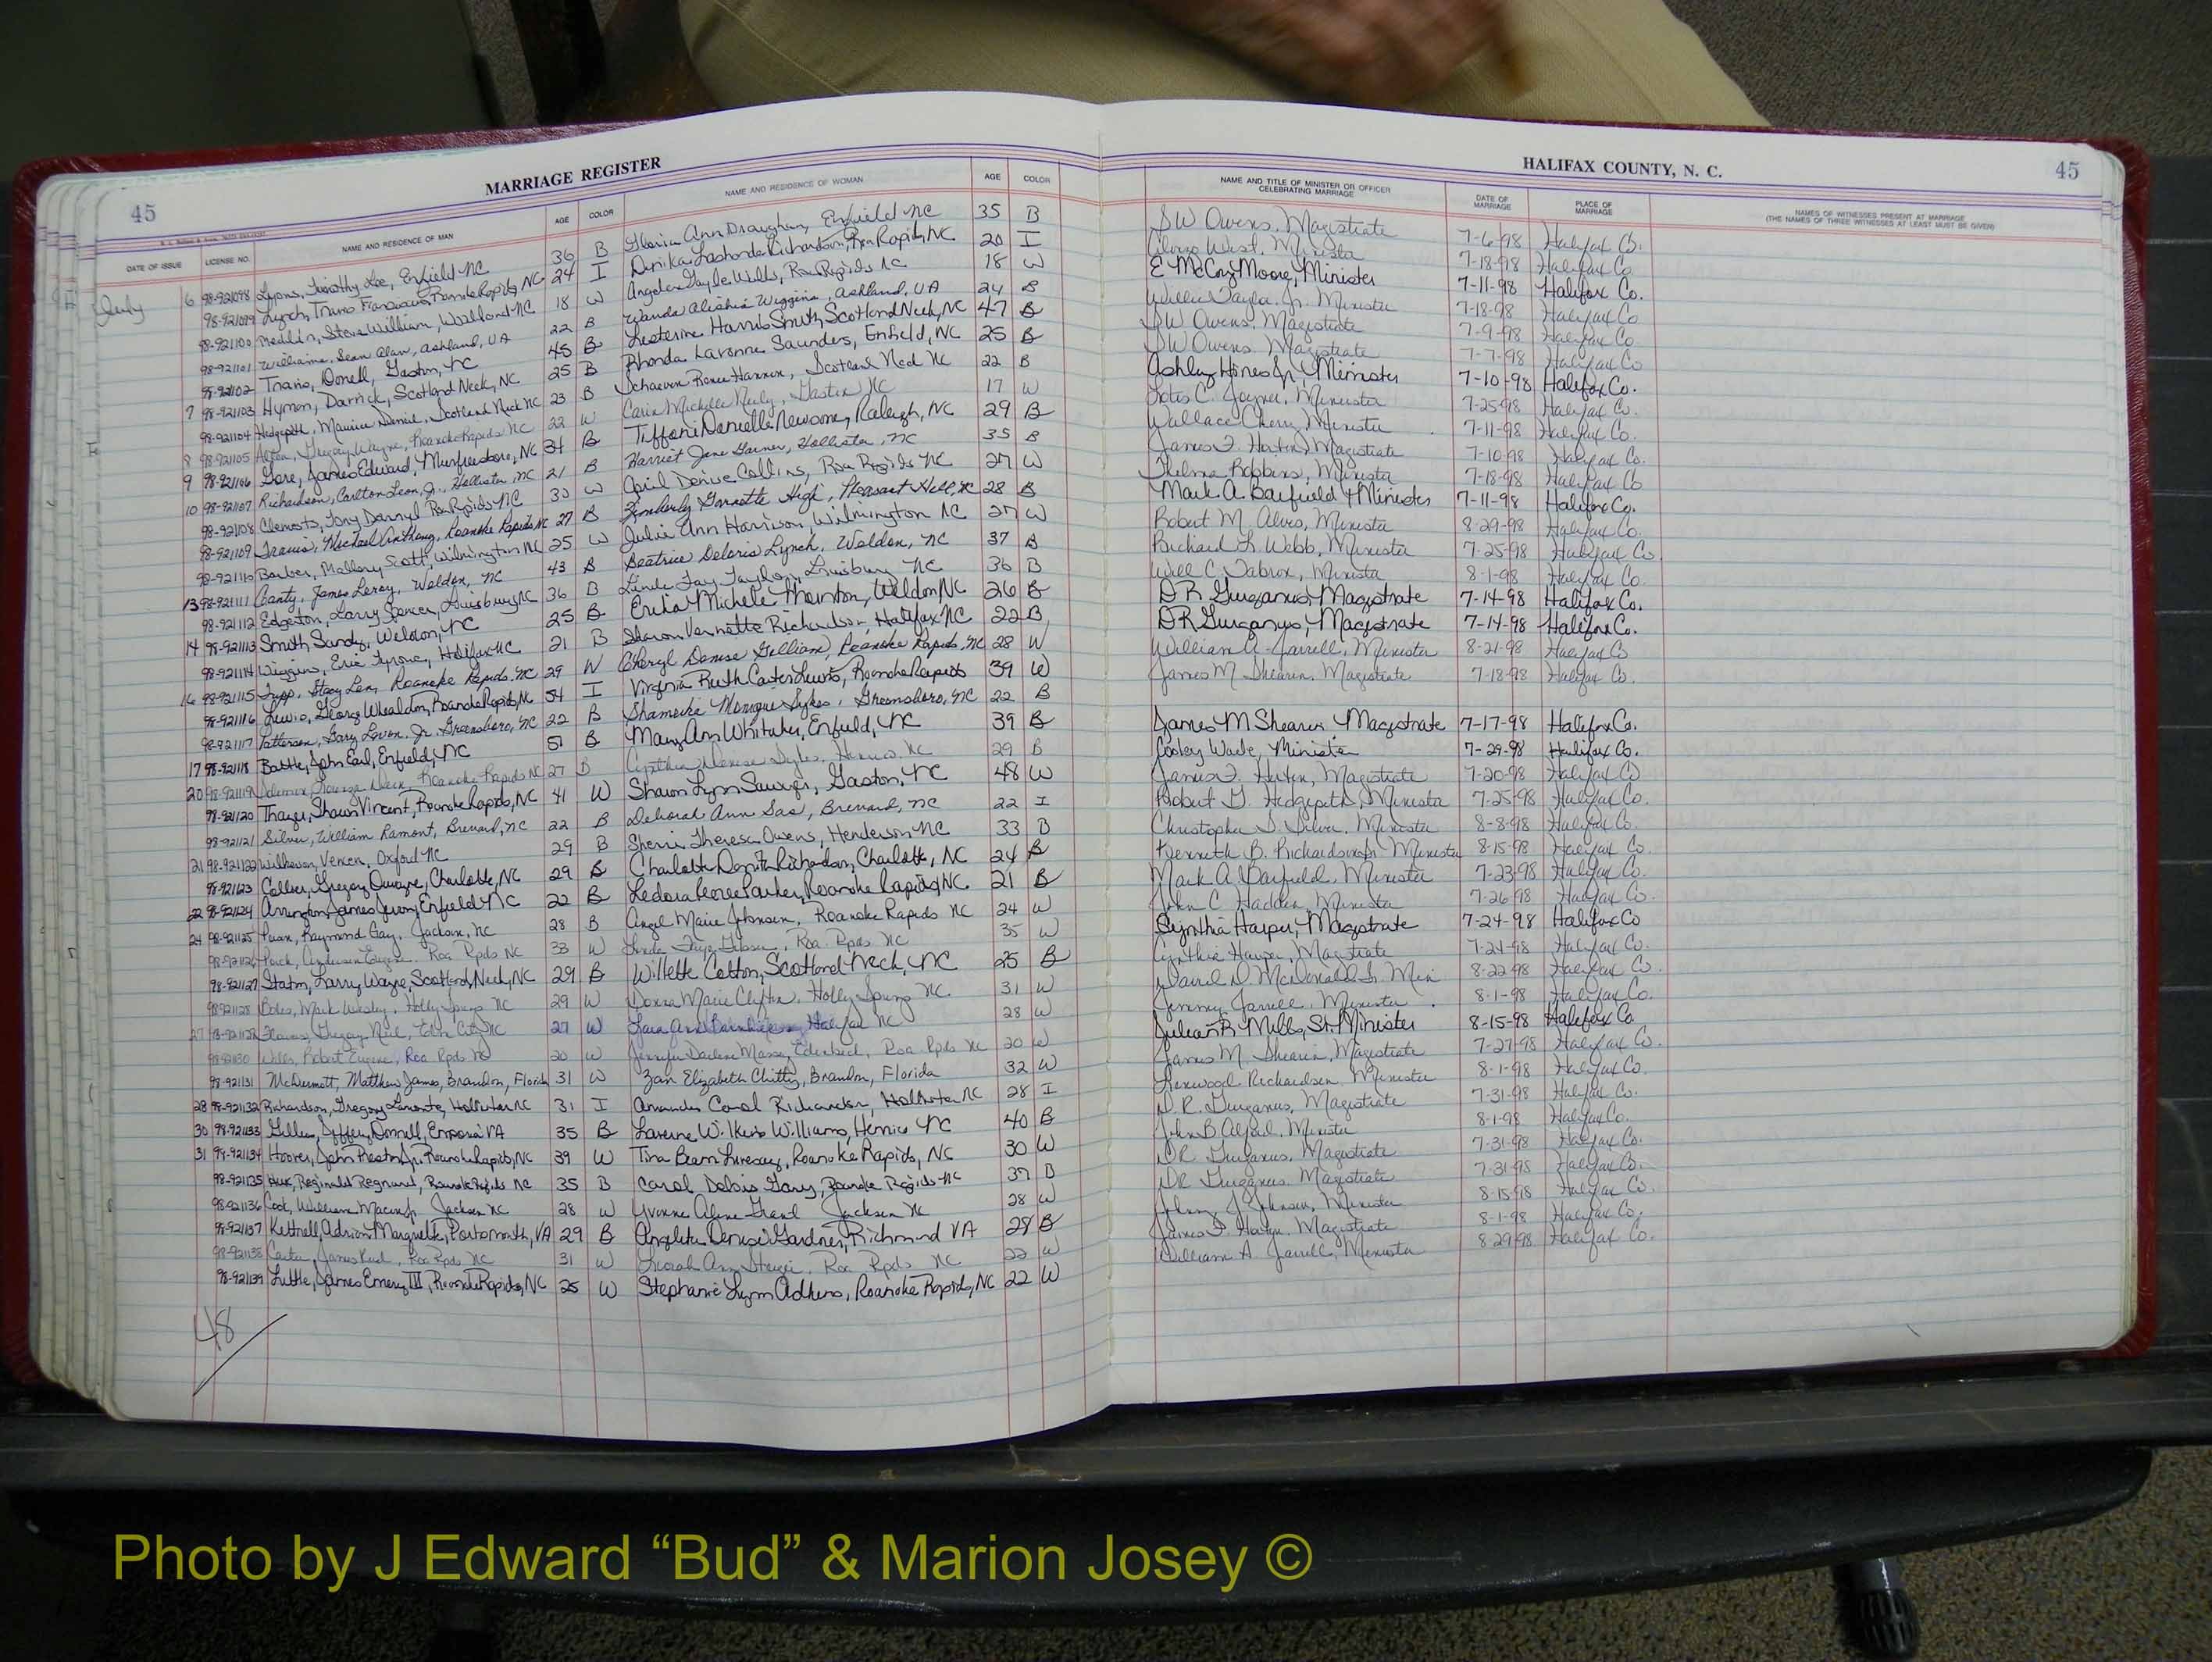 MARRIAGE REGISTER
45
DATE OF ISSUE LICENSE NO. NAME AND RESIDENCE OF MAN AGE COLOR NAME AND RESIDENCE OF WOMAN AGE COLOR
July 6 98-921098 Lyons, Timothy Lee, Enfield NC 36 B Gloria Ann Draughn, Enfield NC 35 B
98-921099 Lynch, Travis Roanoke Rapids, NC 24 I Richardson, Roa Rapids, NC 20 I
98-921100 Medlin, Steve William, Woodland NC 18 W Angela Gayle Wells, Roa Rapids NC 18 W
98-921101 Williams, Sean Alan, Ashland, VA 22 B Wanda Alishia Wiggins, Ashland, VA 24 B
98-921102 Travis, Donell, Gaston, NC 45 B Lesterine Harris Smith, Scotland Neck, NC 47 B
7 98-921103 Hymon, Darrick, Scotland Neck, NC 25 B Rhonda Lavonne Saunders, Enfield, NC 25 B
98-921104 Hedgepeth, Maurice Daniel, Scotland Neck NC 23 B Renee Scotland Neck NC 22 B
8 98-921105 Allen, Gregory Wayne, Roanoke Rapids NC 22 W Carin Michelle Neely, Gaston NC 17 W
9 98-921106 Gore, James Edward, Murfreesboro, NC 34 B Tiffani Danielle Newsome, Raleigh, NC 29 B
10 98-921107 Richardson, Carlton Leon, Jr., Hollister, NC 21 B Harriet Jane Garner, Hollister, NC 35 B
98-921108 Clements, Tony Darryl Roa Rapids NC 30 W April Denise Collins, Roa Rapids NC 27 W
98-921109 Travis, Michael Anthony, Roanoke Rapids, NC 27 B Kimberly Garnette High, Pleasant Hill, NC 28 B
98-921110 Barber, Mallory Scott, Wilmington NC 25 W Julie Ann Harrison, Wilmington NC 27 W
13 98-921111 Canty, James Leroy, Weldon, NC 43 B Beatrice Deloris Lynch, Weldon, NC 37 B
98-921112 Edgerton, Larry Spencer, Louisburg NC 36 B Linda Fay Taylor, Louisburg NC 36 B
14 98-921113 Smith Sandy, Weldon, NC 25 B Erika Michele Thornton, Weldon NC 26 B
98-921114 Wiggins, Eric Tyrone, Halifax NC 21 B Sharon Vernette Richardson, Halifax NC 22 B
16 98-921115 Tripp, Stacy Len, Roanoke Rapids, NC 29 W Cheryl Denise Gilliam, Roanoke Rapids, NC 28 W
98-921116 Lewis, George Whealdon, Roanoke Rapids, NC 54 I Virginia Ruth Carter Lewis, Roanoke Rapids 39 W
98-921117 Patterson, Gary Jr. Greensboro, NC 22 B Shameika Monique Sykes, Greensboro, NC 22 B
17 98-921118 Battle, John Earl, Enfield, NC 51 B Mary Ann Whitaker, Enfield, NC 39 B
20 98-921119 Roanoke Rapids NC 27 B Cynthia Denise NC 29 B
98-921120 Thayer, Shawn Vincent, Roanoke Rapids, NC 41 W Sharon Lynn Sawyer, Gaston, NC 48 W
98-921121 Silver, William Ramont, Brevard, NC 22 B Deborah Ann Brevard, NC 22 I
21 98-921122 Oxford NC 29 B Sherri Theresa Owens, Henderson NC 33 B
98-921123 Collier, Gregory Charlotte, NC 29 B Charlotte Richardson, Charlotte, NC 24 B
22 98-921124 Arrington James Enfield NC 22 B Ledora Renee Parker, Roanoke Rapids, NC 21 B
24 98-921125 Raymond Gay, Jackson, NC 28 B Angel Marie Johnson, Roanoke Rapids NC 24 W
98-921126 Roa Rpds NC 33 W Linda Faye Roa. Rpds. NC 35 W
98-921127 Staton, Larry Wayne, Scotland Neck, NC 29 B Willette Cotton, Scotland Neck, NC 25 B
98-921128 Boles, Mark Wesley, Holly Springs NC 29 W Donna Marie Clifton, Holly Springs NC 31 W
27 98-921129 Gregory Neil, NC 27 W Ann Halifax NC 28 W
98-921130 Wells, Robert Eugene, Roa Rpds NC 20 W Jennifer Darlene Massey Roa. Rpds NC 20 W
98-921131 McDermott, Matthew James, Brandon, Florida 31 W Elizabeth Chitty, Brandon, Florida 32 W
28 98-921132 Richardson, Gregory Lamonte, Hollister NC 31 I Amanda Carol Richardson, Hollister NC 28 I
30 98-921133 Jeffrey Donnell, Emporia VA 35 B Laverne Wilkins Williams, Henrico NC 40 B
31 98-921134 Hoover, John Preston Jr, Roanoke Rapids, NC 39 W Tina Roanoke Rapids, NC 30 W
98-921135 Reginald Roanoke Rapids NC 35 B Carol Debra Roanoke Rapids NC 37 B
98-921136 Cook, William Jackson NC 28 W Yvonne Grant Jackson NC 28 W
98-921137 Adrian Marquette, Portsmouth, VA 29 B Denise Gardner, Richmond VA 28 B
98-921138 Carter, James Roa Rpds NC 31 W Ann Roa Rpds NC 22 W
98-921139 Little, James Emery III, Roanoke Rapids, NC 25 W Stephanie Lynn Adkins, Roanoke Rapids, NC 22 W
48
HALIFAX COUNTY, N. C.
45
NAME AND TITLE OF MINISTER OR OFFICER CELEBRATING MARRIAGE DATE OF MARRIAGE PLACE OF MARRIAGE NAMES OF WITNESSES PRESENT AT MARRIAGE
(THE NAMES OF THREE WITNESSES AT LEAST MUST BE GIVEN)
SW Owens, Magistrate 7-6-98 Halifax Co.
Alonzo West, Minister 7-18-98 Halifax Co
E McCoy Moore, Minister 7-11-98 Halifax Co.
Willie Taylor, Jr. Minister 7-18-98 Halifax Co
SW Owens, Magistrate 7-9-98 Halifax Co
SW Owens Magistrate 7-7-98 Halifax Co
Ashley Hines Jr, Minister 7-10-98 Halifax Co.
C. Joyner, Minister 7-25-98 Halifax Co.
Wallace Cherry Minister 7-11-98 Halifax Co.
James F. Magistrate 7-10-98 Halifax Co.
Thelma Robbins, Minister 7-18-98 Halifax Co
Mark A. Barfield Minister 7-11-98 Halifax Co.
Robert M. Alves, Minister 8-29-98 Halifax Co.
Richard L. Webb, Minister 7-25-98 Halifax Co.
Will C. Minister 8-1-98 Halifax Co.
DR Gurganus, Magistrate 7-14-98 Halifax Co.
DR Gurganus, Magistrate 7-14-98 Halifax Co.
William A. Jarrell, Minister 8-21-98 Halifax Co
James M Shearin, Magistrate 7-18-98 Halifax Co.
James M Shearin Magistrate 7-17-98 Halifax Co.
Cooley Wade, Minister 7-29-98 Halifax Co.
James F. Magistrate 7-20-98 Halifax Co
Robert G. Hedgepeth, Minister 7-25-98 Halifax Co.
Christopher D. Silver, Minister 8-8-98 Halifax Co.
Kenneth B. Richardson Minister 8-15-98 Halifax Co.
Mark A. Barfield, Minister 7-23-98 Halifax Co.
John C. Minister 7-26-98 Halifax Co.
Cynthia Harper, Magistrate 7-24-98 Halifax Co
Cynthia Harper, Magistrate 7-24-98 Halifax Co.
David D. McDonald Sr. Min 8-22-98 Halifax Co.
Jimmy Jarrell, Minister 8-1-98 Halifax Co.
Julian R. Mills, Sr. Minister 8-15-98 Halifax Co
James M Shearin, Magistrate 7-27-98 Halifax Co.
Linwood Richardson, Minister 8-1-98 Halifax Co.
D.R. Gurganus, Magistrate 7-31-98 Halifax Co.
John B. Minister 8-1-98 Halifax Co.
DR Gurganus, Magistrate 7-31-98 Halifax Co.
DR Gurganus Magistrate 7-31-98 Halifax Co.
Johnny J Johnson, Minister 8-15-98 Halifax Co.
James F. Magistrate 8-1-98 Halifax Co.
William A. Jarrell, Minister 8-29-98 Halifax Co.
Photo by J Edward “Bud” & Marion Josey ©